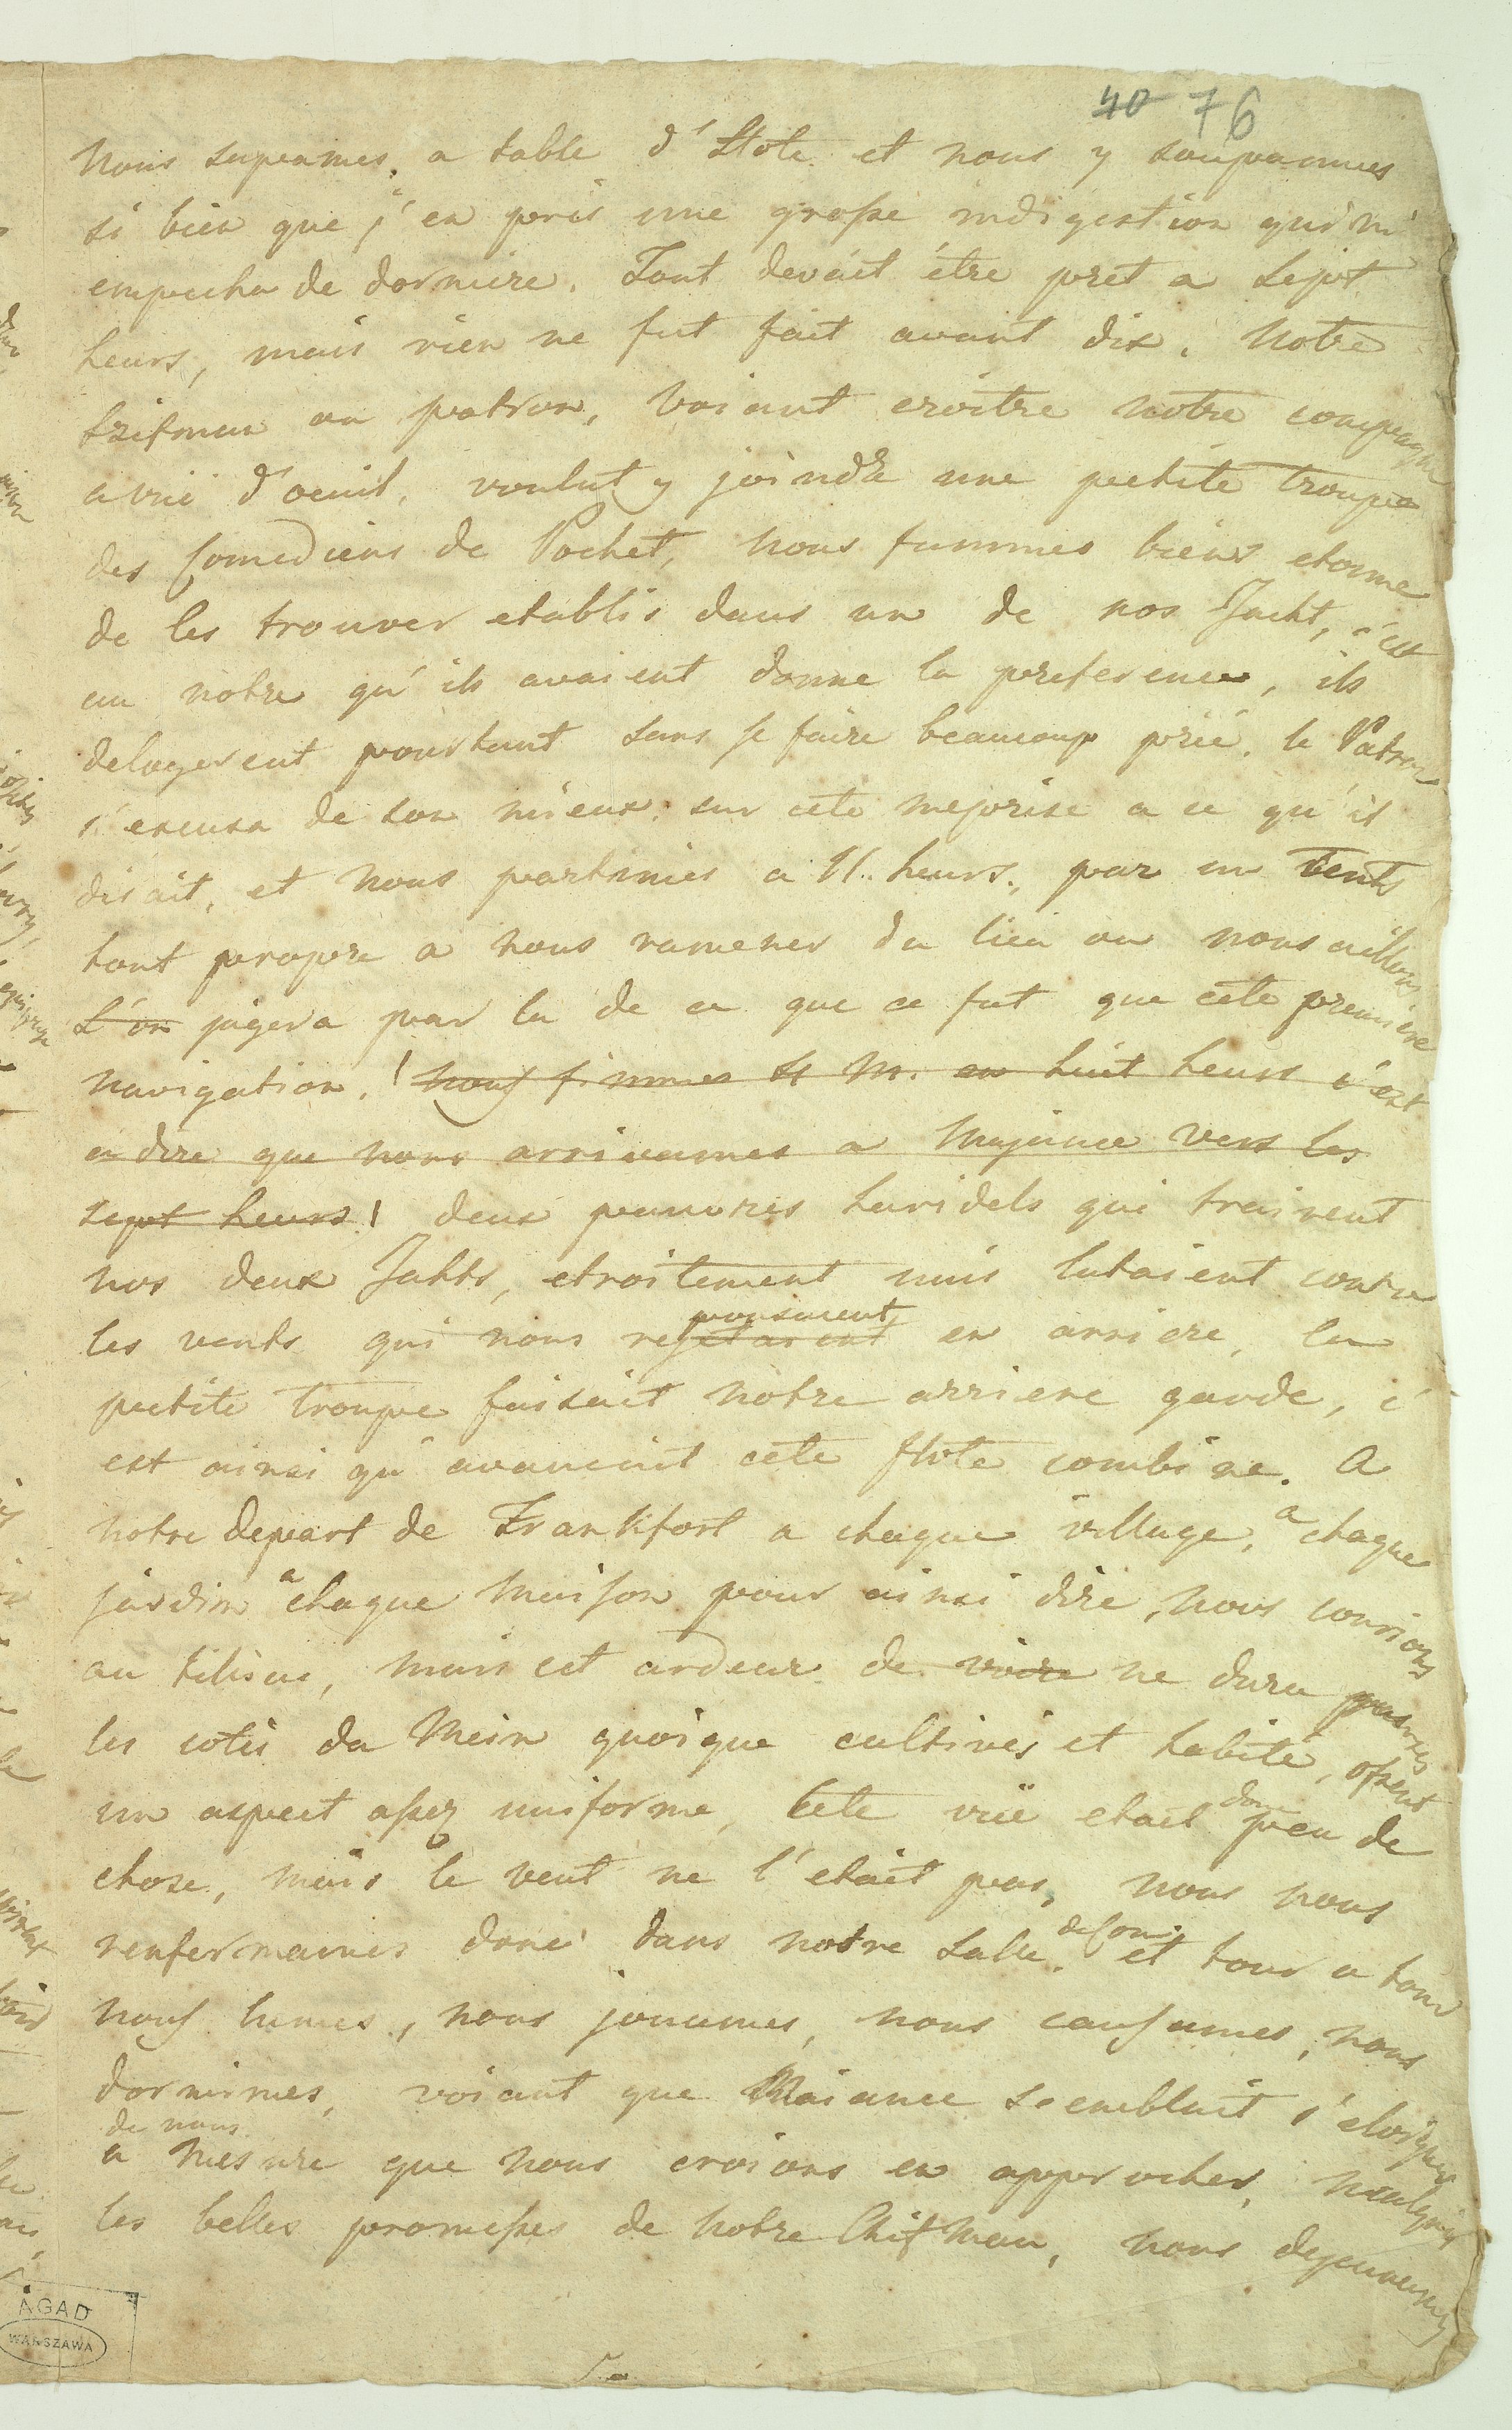 40 76
Nous supeames, a table d'Hote et nous y soupeammes
si bien que j'en pris une grosse indigestion qui m'
empecha de dormire. Tout devait être pret a sept
heurs, mais rien ne fut fait avant dix. Notre
patron, voiant croitre notre compagnie
a vüe d'oeuil, voulut y joindre une petite troupe
des Comediens de Pochet, nous fummes biens etonne
de les trouver etablis dans un de nos Jacht, c'est
au notre qu'ils avaient donne la preference, ils
delogerent pourtant sans se faire beaucoup prié. le Patron
s'excusa de son mieux sur cete meprise a ce qu'il
disait, et nous partimes a 11. heurs, par un vents
tout propre a nous ramener du lieu ou nous allions.
L'on jugera par la de ce que ce fut que cete premiere
navigation. ! nous fimmes 4 M. en huit heurs c'est
a dire que nous arrivames a Majence vers les
sept heurs! deux pauvres haridels qui trainent
nos deux Jahts, etroitement unis lutaient contre
poussaient
les vents qui nous rejetaient en arriere, la
petite troupe faisait notre arriere garde, c'
est ainsi qu'avancait cete flote combine. A
notre depart de Frankfort a chaque village, a chaque
jardin a chaque maison pour ainsi dire, nous courions
au tiliac, mais cet ardeur de voire ne dura pas,
les cotés du Mein quoique cultivés et habité, ofrent
un aspect assez uniforme, Cete vüe etait donc peu de
chose, mais le vent ne l'etait pas, nous nous
renfermames donc dans notre salle, et tour a tour
nous lumes, nous jouames, nous causames, nous
dormimes, voiant que Maiance sembloit s'eloigner
de nous
a mesure que nous croions en approcher, malgré
les belles promesses de notre Chifman, nous dejeunames
AGAD
WARSZAWA